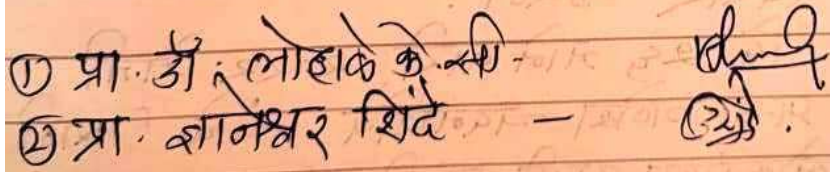 ① प्रा. डॉ. लोहाळे के. सी -
② प्रा. ज्ञानेश्वर शिंदे -